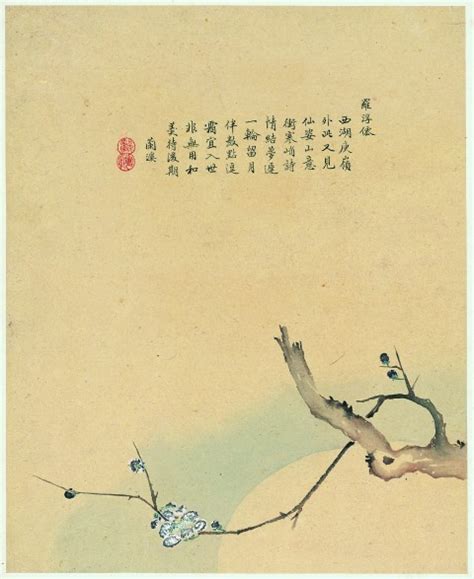 羅浮僊
西湖庾嶺
外此又見
仙姿山意
衝寒峭詩
情結夢遲
一輪留月
伴數點浥
霜宜入世
非無用和
羹待後期
蘭溪